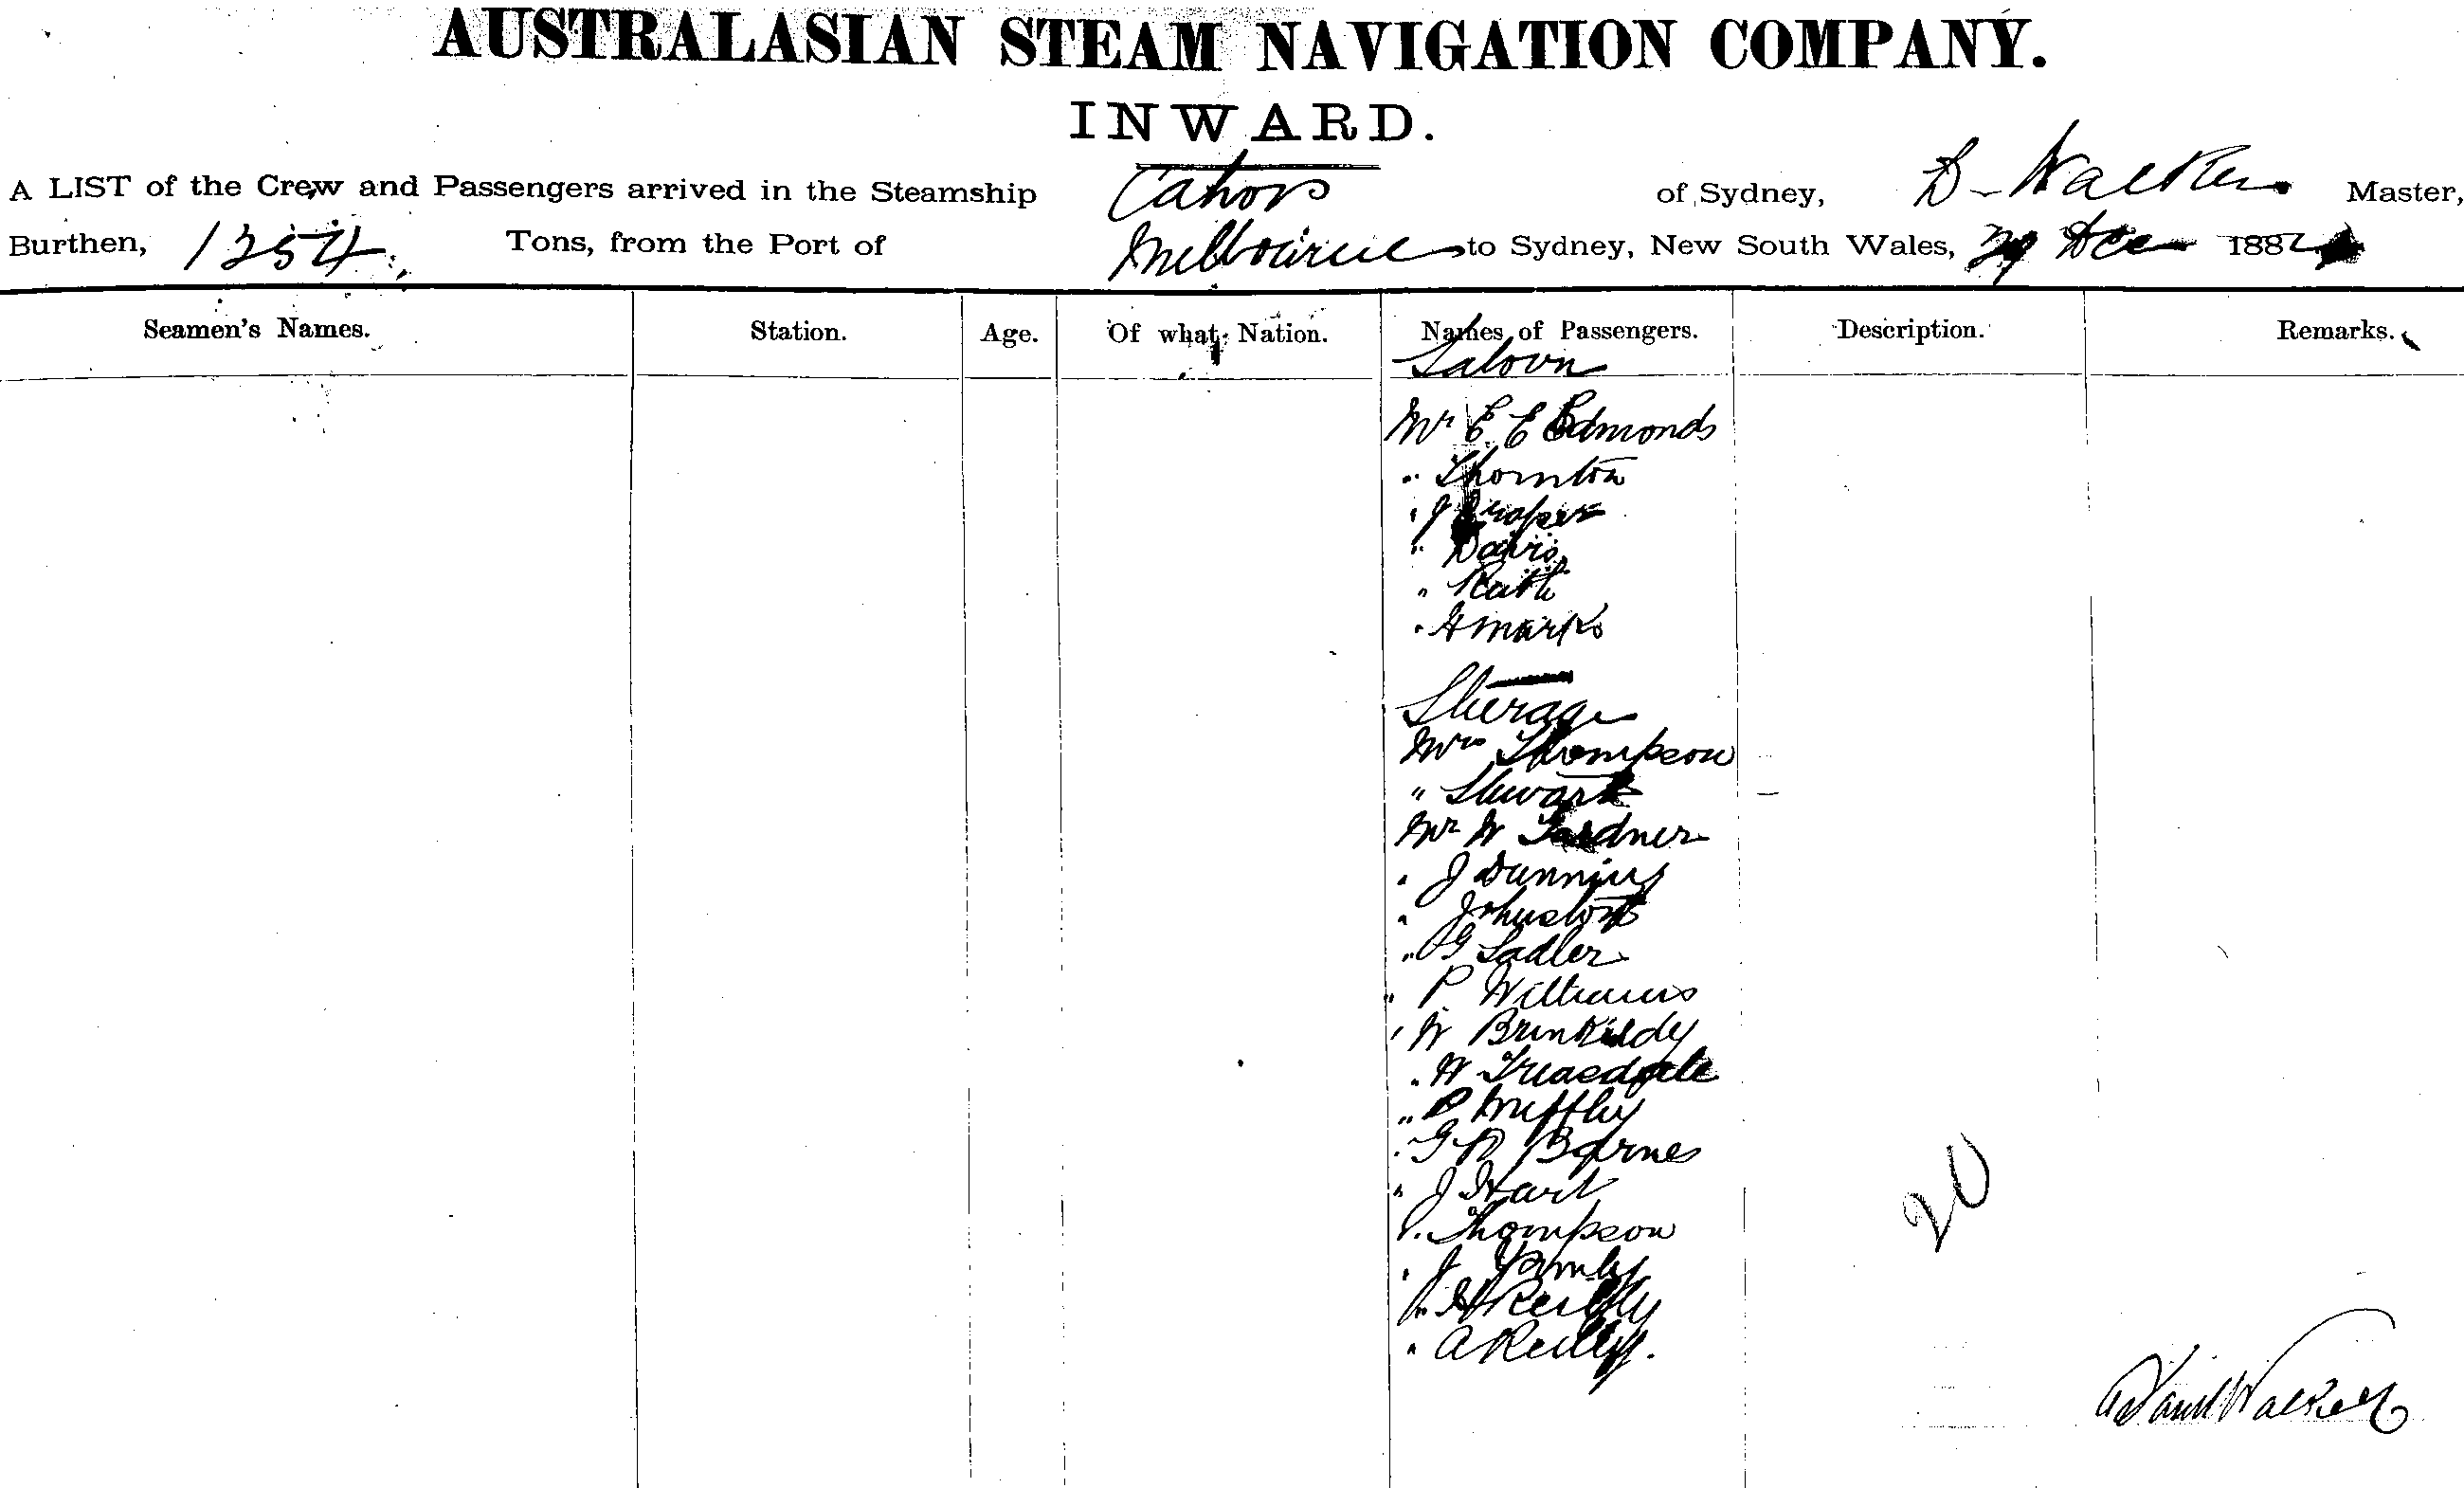 AUSTRALASIAN STEAM NAVIGATION COMPANY.
INWARD.
A LIST of the Crew and Passengers arrived in the Steamship Cahors of Sydney, D. Walker Master,
Burthen, 1254 Tons, from the Port of Melbourne to Sydney, New South Wales, 29 Dec 1882
Seamen's Names. Station. Age. Of what Nation. Names of Passengers. Description. Remarks.
Saloon
Mr E E Edmonds
" Thornton
" J Draper
" Davis
" Rath
" H Marks
Steerage
Mrs Thompson
" Stewart
Mr W Gardner
" J Dunning
" Johnston
" G Sadler
" P Williams
" W
" H
" P
" G D Barnes
" J Hart
" Thompson
" J
" H Reilly
" A Reilly.
20
David Walker